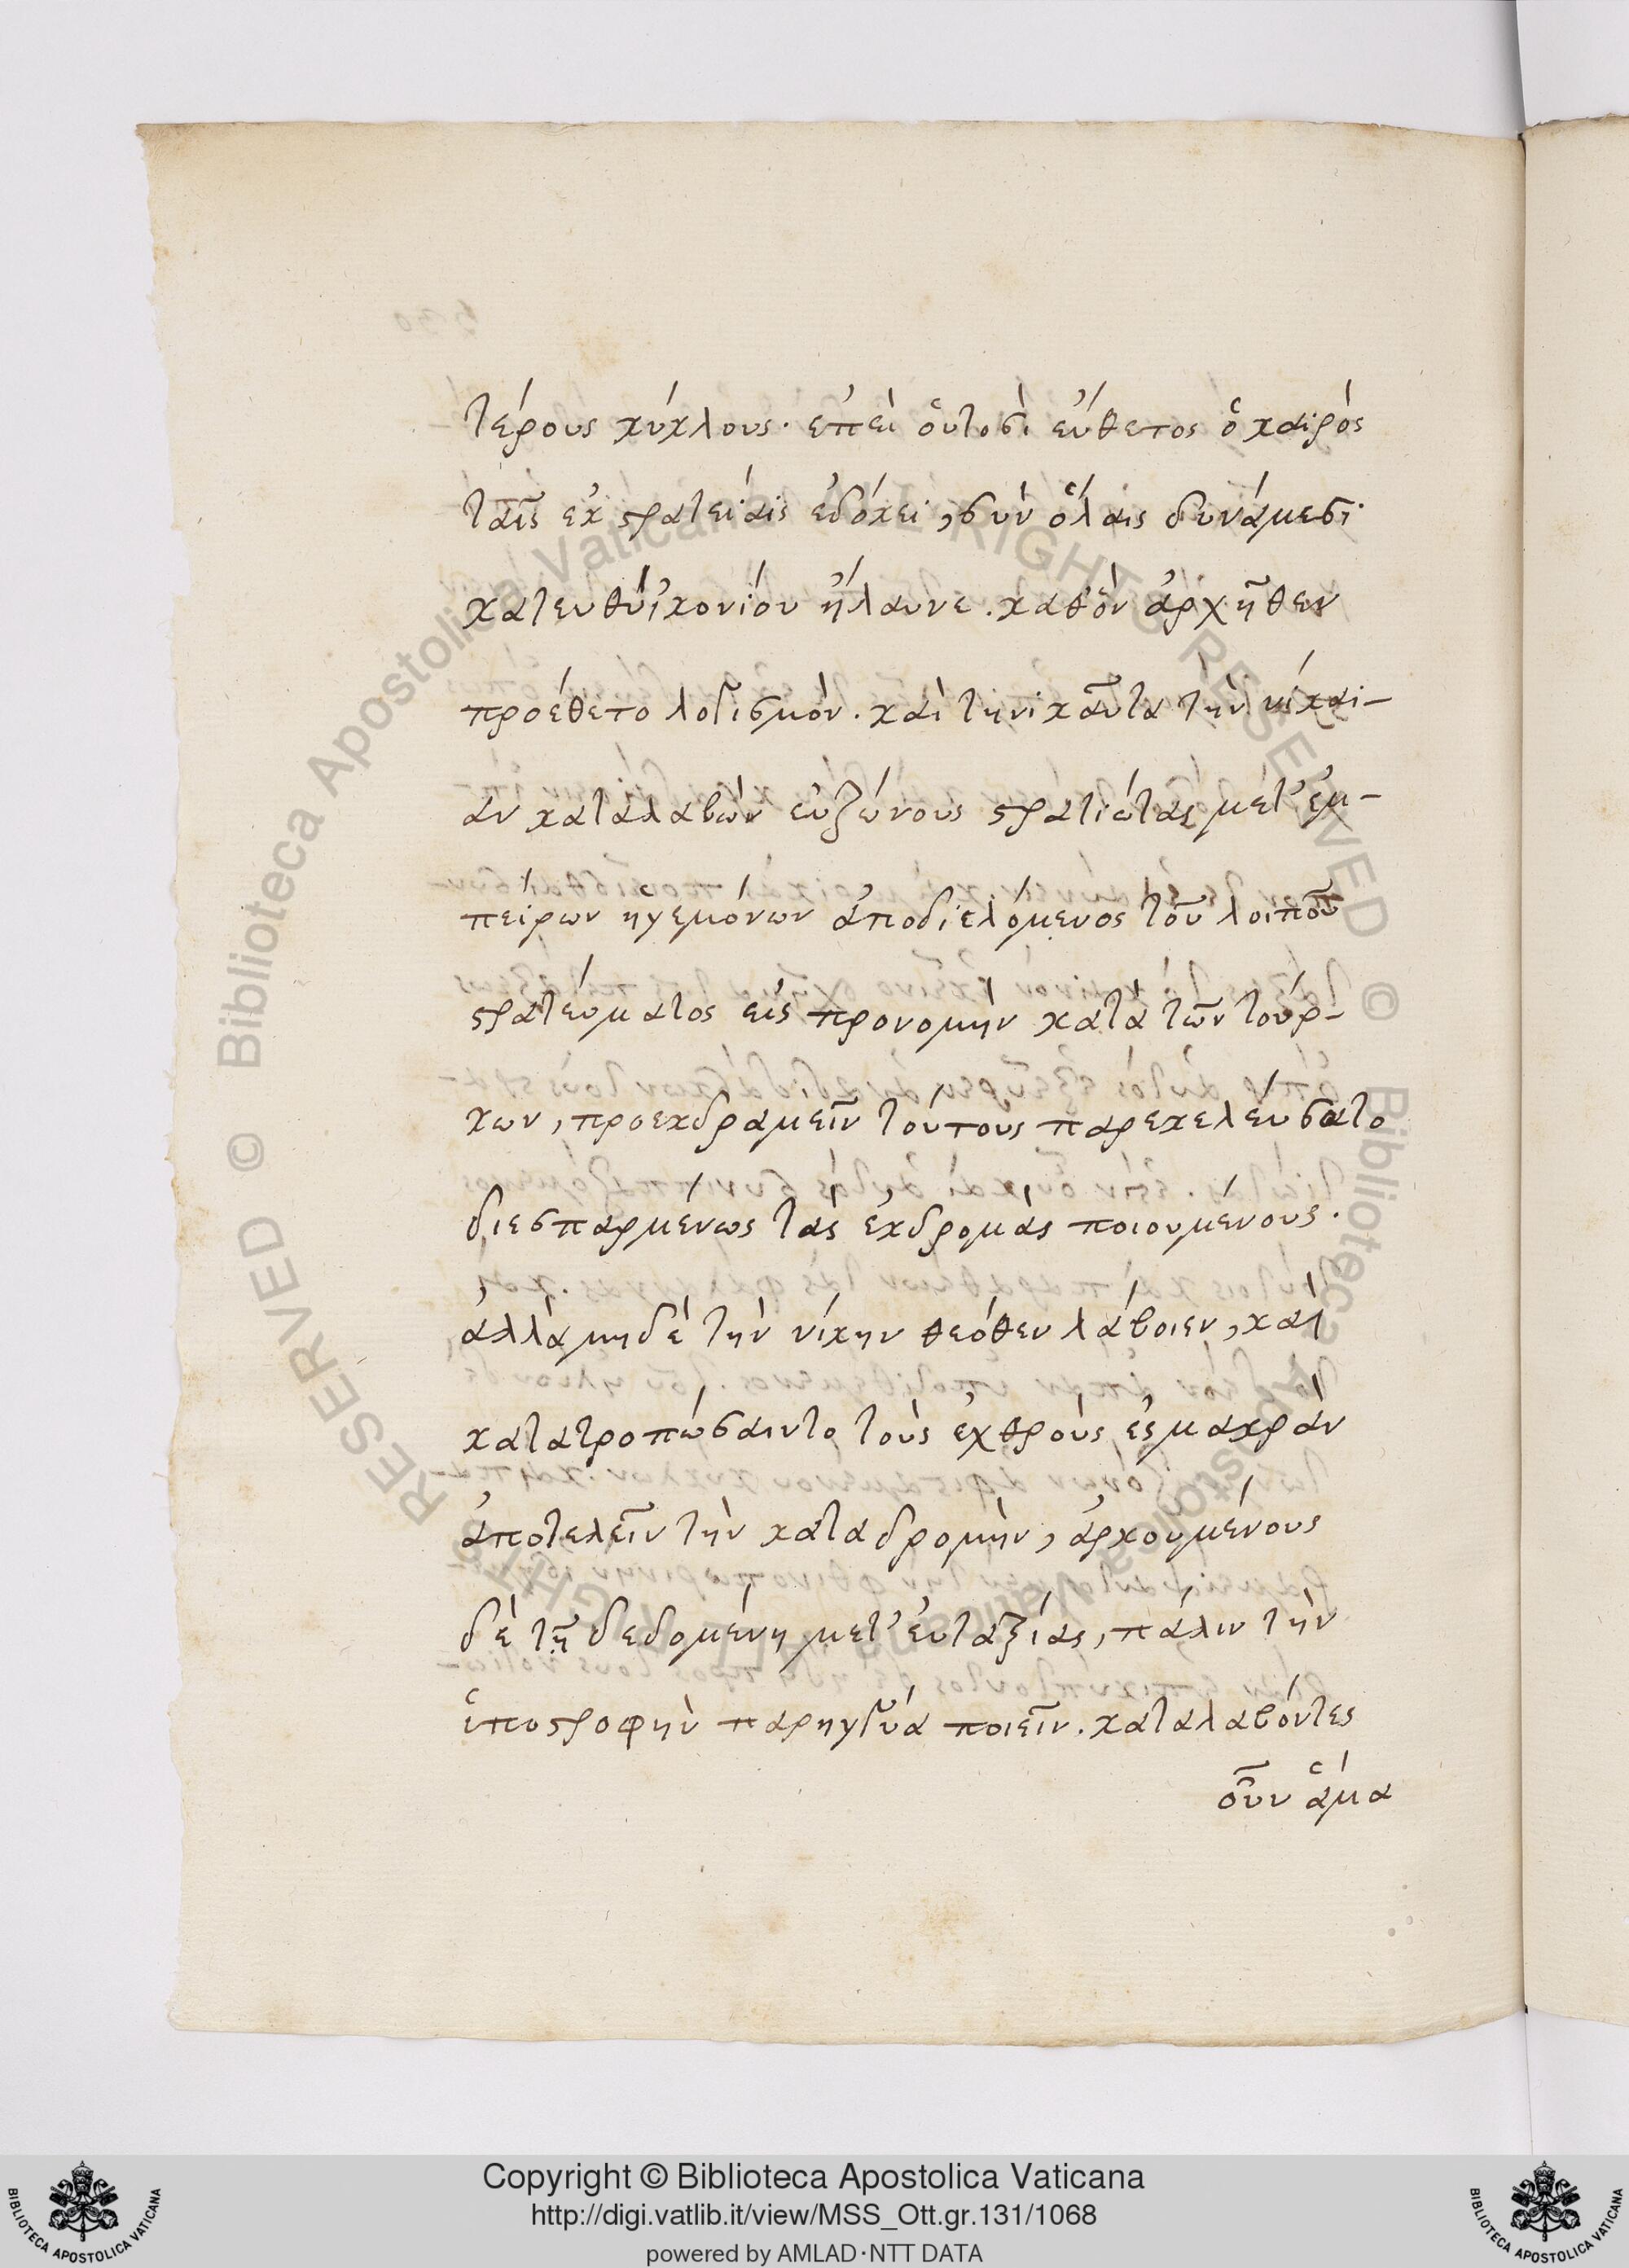 τέρους κύκλους· ἐπεὶ οὑτοσὶ εὔθετος ὁ καιρὸς
ταῖς ἐκστρατείαις ἐδόκει, σὺν ὅλαις δυνάμεσι
κατευθὺ ἰκονίου ἤλαυνε. καθ' ὃν ἀρχῆθεν
προέθετο λογισμόν. καὶ τηνικαῦτα τὴν νίκαι-
αν καταλαβὼν εὐζώνους στρατιώτας μετ' ἐμ-
πείρων ἡγεμόνων ἀποδιελόμενος τοῦ λοιποῦ
στρατεύματος εἰς προνομὴν κατὰ τῶν τούρ-
κων, προεκδραμεῖν τούτους παρεκελεύσατο
διεσπαρμένως τὰς ἐκδρομὰς ποιουμένους.
ἀλλὰ μηδὲ τὴν νίκην θεόθεν λάβοιεν, καὶ
κατατροπώσαιντο τοὺς ἐχθροὺς ἐς μακρὰν
ἀποτελεῖν τὴν καταδρομὴν, ἀρκουμένους
δὲ τῇ δεδομένῃ μετ' εὐταξίας, πάλιν τὴν
ὑποστροφὴν παρηγγύα ποιεῖν. καταλαβόντες
οὖν ἅμα
© Biblioteca Apostolica Vaticana ALL RIGHTS RESERVED
© Biblioteca Apostolica Vaticana ALL RIGHTS RESERVED
Copyright © Biblioteca Apostolica Vaticana
http://digi.vatlib.it/view/MSS_Ott.gr.131/1068
powered by AMLAD·NTT DATA
BIBLIOTECA APOSTOLICA VATICANA
BIBLIOTECA APOSTOLICA VATICANA